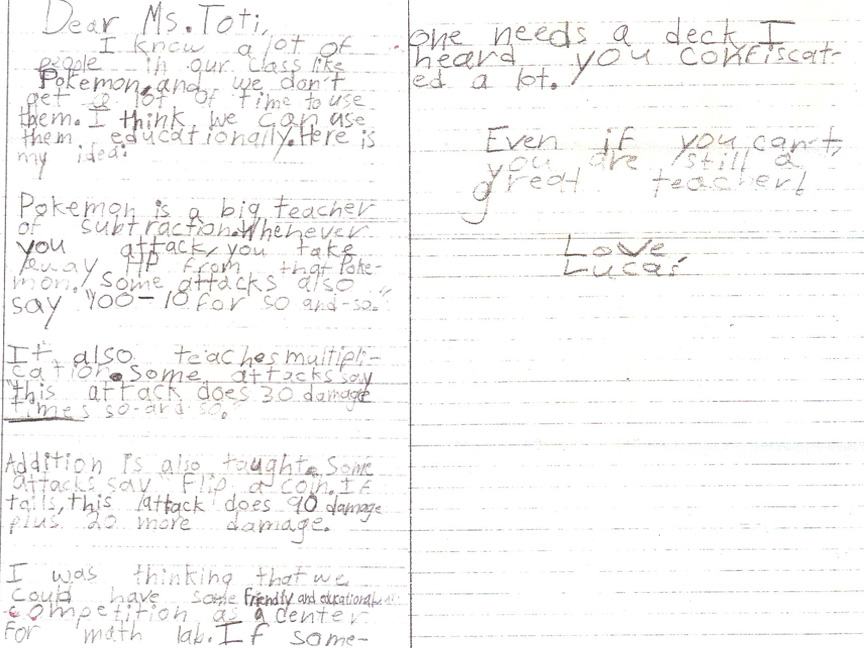 Dear Ms. Toti,
I know a lot of
people in our class like
Pokemon, and we don't
get a lot of time to use
them. I think we can use
them educationally. Here is
my idea:
Pokemon is a big teacher
of subtraction. Whenever
you attack, you take
away HP from that Poke-
mon. Some attacks also
say "100-10 for so and-so."
It also teaches multipli-
cation. Some attacks say
"this attack does 30 damage
times so-and so."
Addition is also taught. Some
attacks say "Flip a coin. If
tails, this attack does 90 damage
plus 20 more damage.
I was thinking that we
could have some friendly and educational
competition as a center
for math lab. If some-
one needs a deck I
heard you confiscat-
ed a lot.
Even if you can't,
you are still a
great teacher!
Love
Lucas